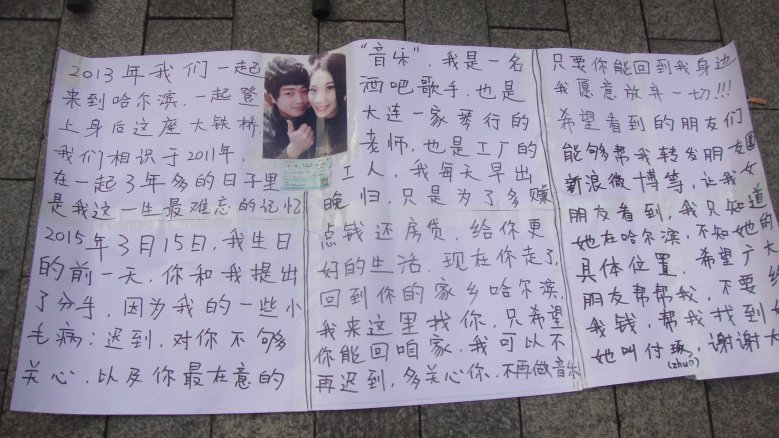 2013年我们一起
来到哈尔滨,一起登
上身后这座大铁桥
我们相识于2011年,
在一起3年多的日子里
是我这一生最难忘的记忆
2015年3月15日,我生日
的前一天,你和我提出
了分手,因为我的一些小
毛病:迟到,对你不够
关心,以及你最在意的
“音乐”,我是一名
酒吧歌手,也是
大连一家琴行的
老师,也是工厂的
工人,我每天早出
晚归,只是为了多赚
点钱还房贷,给你更
好的生活.现在你走了,
回到你的家乡哈尔滨,
我来这里找你,只希望
你能回咱家.我可以不
再迟到,多关心你,不再做音乐
只要你能回到我身边
我愿意放弃一切!!!
希望看到的朋友们
能够帮我转发朋友圈
新浪微博等,让我女
朋友看到,我只知道
她在哈尔滨,不知她的
具体位置.希望广大
朋友帮帮我,不要给
我钱,帮我找到她
她叫付琢(zhuó),谢谢大